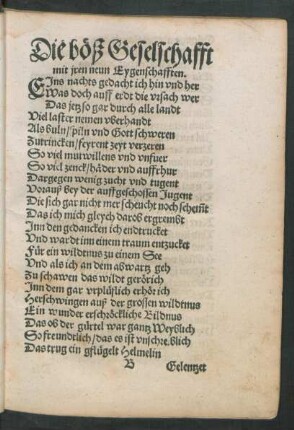 Die böß Geselschafft
mit jren neun Eygenschafften.
Eins nachts gedacht ich hin vnd her
Was doch auff erdt die vrsach wer
Das jetz so gar durch alle landt
Viel laster nemen vberhandt
Als buln/ spiln vnd Gottschweren
Zutrincken/ feyrent zeyt verzeren
So viel mutwillens vnd vnfuer
So viel zenck/ häder vnd auffrhur
Dargegen wenig zucht vnd tugent
Vorauß bey der auffgeschossen Jugent
Die sich gar nicht mer scheucht noch schemt
Das ich mich gleych darob ergrembt
Inn den gedancken ich endtrucket
Vnd wardt inn einem traum entzucket
Für ein wildtnus zu einem See
Vnd als ich an dem abwartz geh
Zu schawen das wildt gerörich
Inn dem gar vrplüßlich erhör ich
Herschwingen auß der grossen wildtnus
Ein wunder erschröckliche Bildnus
Das ob der gürtel war gantz Weyblich
So freundtlich/ das es ist vnschreiblich
Das trug ein gflügelt Helmelin
B Gelentzet